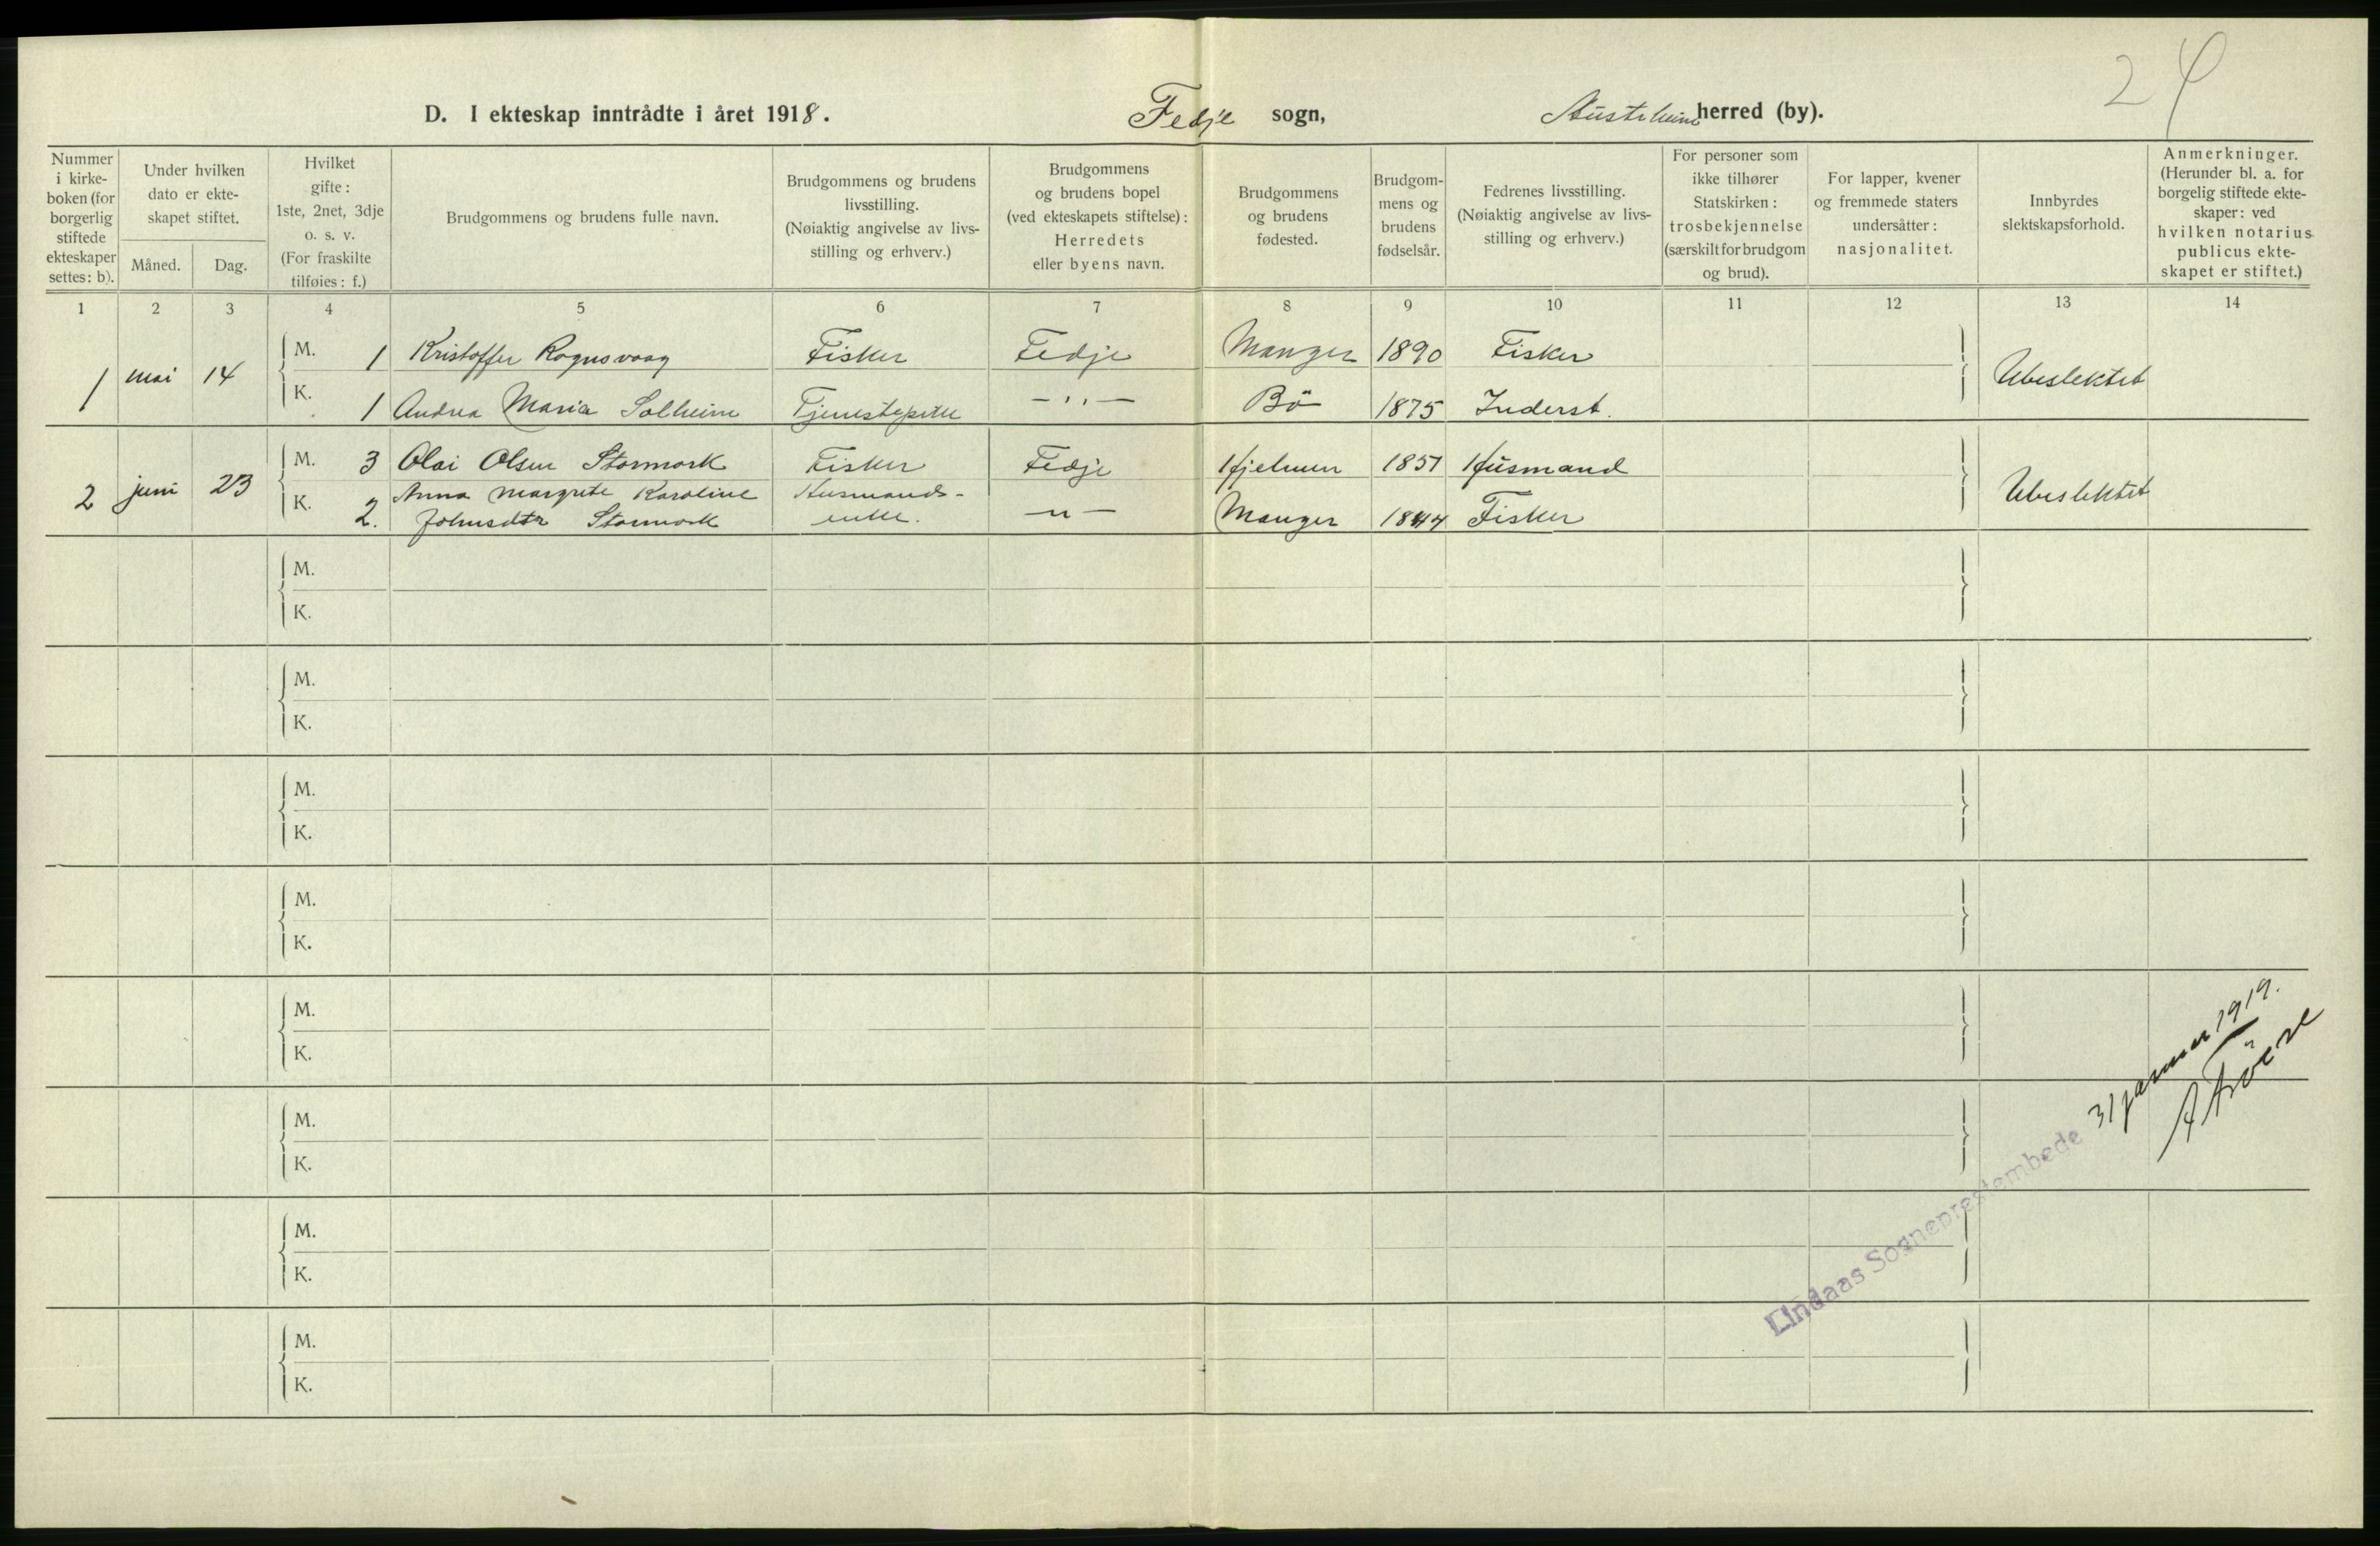 24
D. I ekteskap inntrådte i året 1918. Fedje sogn, Austrheim herred (by).
Nummer i kirke- boken (for borgerlig stiftede ekteskaper settes: b).
Under hvilken dato er ekte- skapet stiftet.
Måned. Dag.
Hvilket gifte: 1ste, 2net, 3dje o. s. v. (For fraskilte tilføies: f.)
Brudgommens og brudens fulle navn.
Brudgommens og brudens livsstilling. (Nøiaktig angivelse av livs- stilling og erhverv.)
Brudgommens og brudens bopel (ved ekteskapets stiftelse): Herredets eller byens navn.
Brudgommens og brudens fødested.
Brudgom- mens og brudens fødselsår.
Fedrenes livsstilling. (Nøiaktig angivelse av livs- stilling og erhverv.)
For personer som ikke tilhører Statskirken: trosbekjennelse (særskilt for brudgom og brud).
For lapper, kvener og fremmede staters undersåtter: nasjonalitet.
Innbyrdes slektskapsforhold.
Anmerkninger. (Herunder bl. a. for borgelig stiftede ekte- skaper: ved hvilken notarius publicus ekte- skapet er stiftet.)
1 2 3 4 5 6 7 8 9 10 11 12 13 14
1 mai 14 M. 1 Kristoffer Rognsvaag Fisker Fedje Manger 1890 Fisker Ubeslektet
K. 1 Andrea Maria Solheim Tjenestepike — " — Bö 1875 Inderst.
2 juni 23 M. 3 Olai Olsen Stormark Fisker Fedje Hjelmen 1851 Husmand Ubeslektet
K. 2. Anna Margrete Karoline Husmands-
Johnsdtr Stormark enke. — " — Manger 1844 Fisker
M.
K.
M.
K.
M.
K.
M.
K.
M.
K.
M.
K.
M.
K.
M.
K.
Lindaas Sogneprestembede 31 januar 1919.